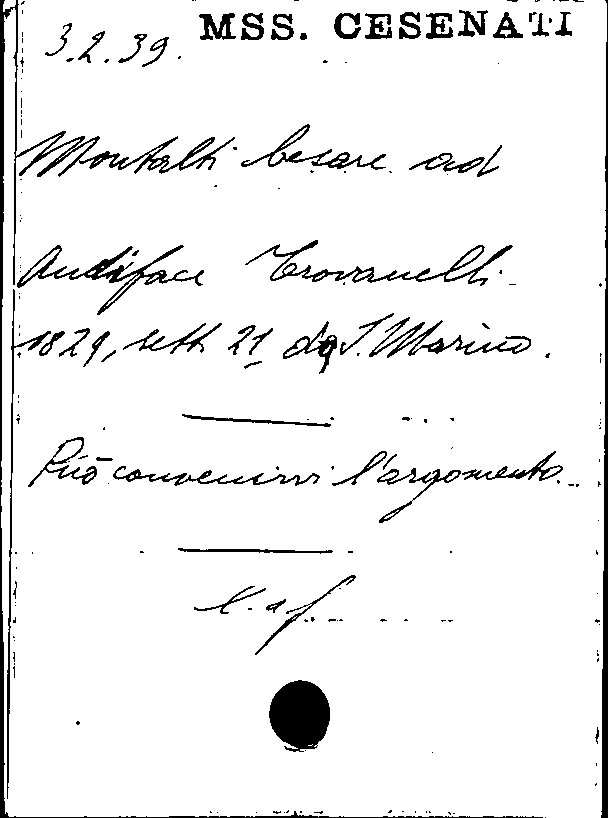 3.2.39. MSS. CESENATI
Montalti Cesare ad
Audiface Trovanelli.
1829, sett. 21, da S. Marino.
Può convenirvi l'argomento.
l. a f.